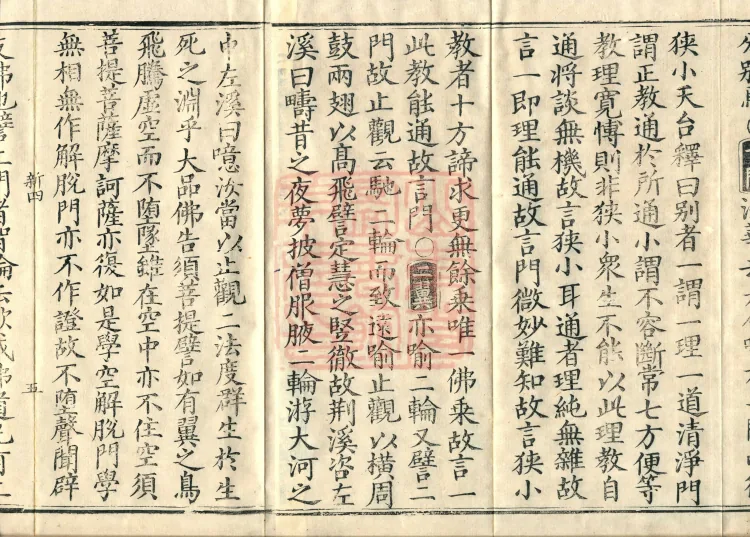 狹小天台釋曰别者一謂一理一道清淨門
謂正教通於所通小謂不容斷常七方便等
教理寬愽則非狹小衆生不能以此理教自
通將談無機故言狹小耳通者理純無雜故
言一即理能通故言門微妙難知故言狹小
教者十方諦求更無餘乘唯一佛乘故言一
此教能通故言門〇亦喻二輪又譬二
門故止觀云馳二輪而致遠喻止觀以横周
鼓兩翅以髙飛譬定慧之竪徹故荆溪咨左
溪曰疇昔之夜夢披僧服腋二輪游大河之
中左溪曰噫汝當以止觀二法度群生於生
死之淵乎大品佛告須菩提譬如有翼之鳥
飛騰虚空而不堕墜雖在空中亦不住空須
菩提菩薩摩訶薩亦復如是學空解脱門學
無相無作解脱門亦不作證故不堕聲聞辟
新四
五